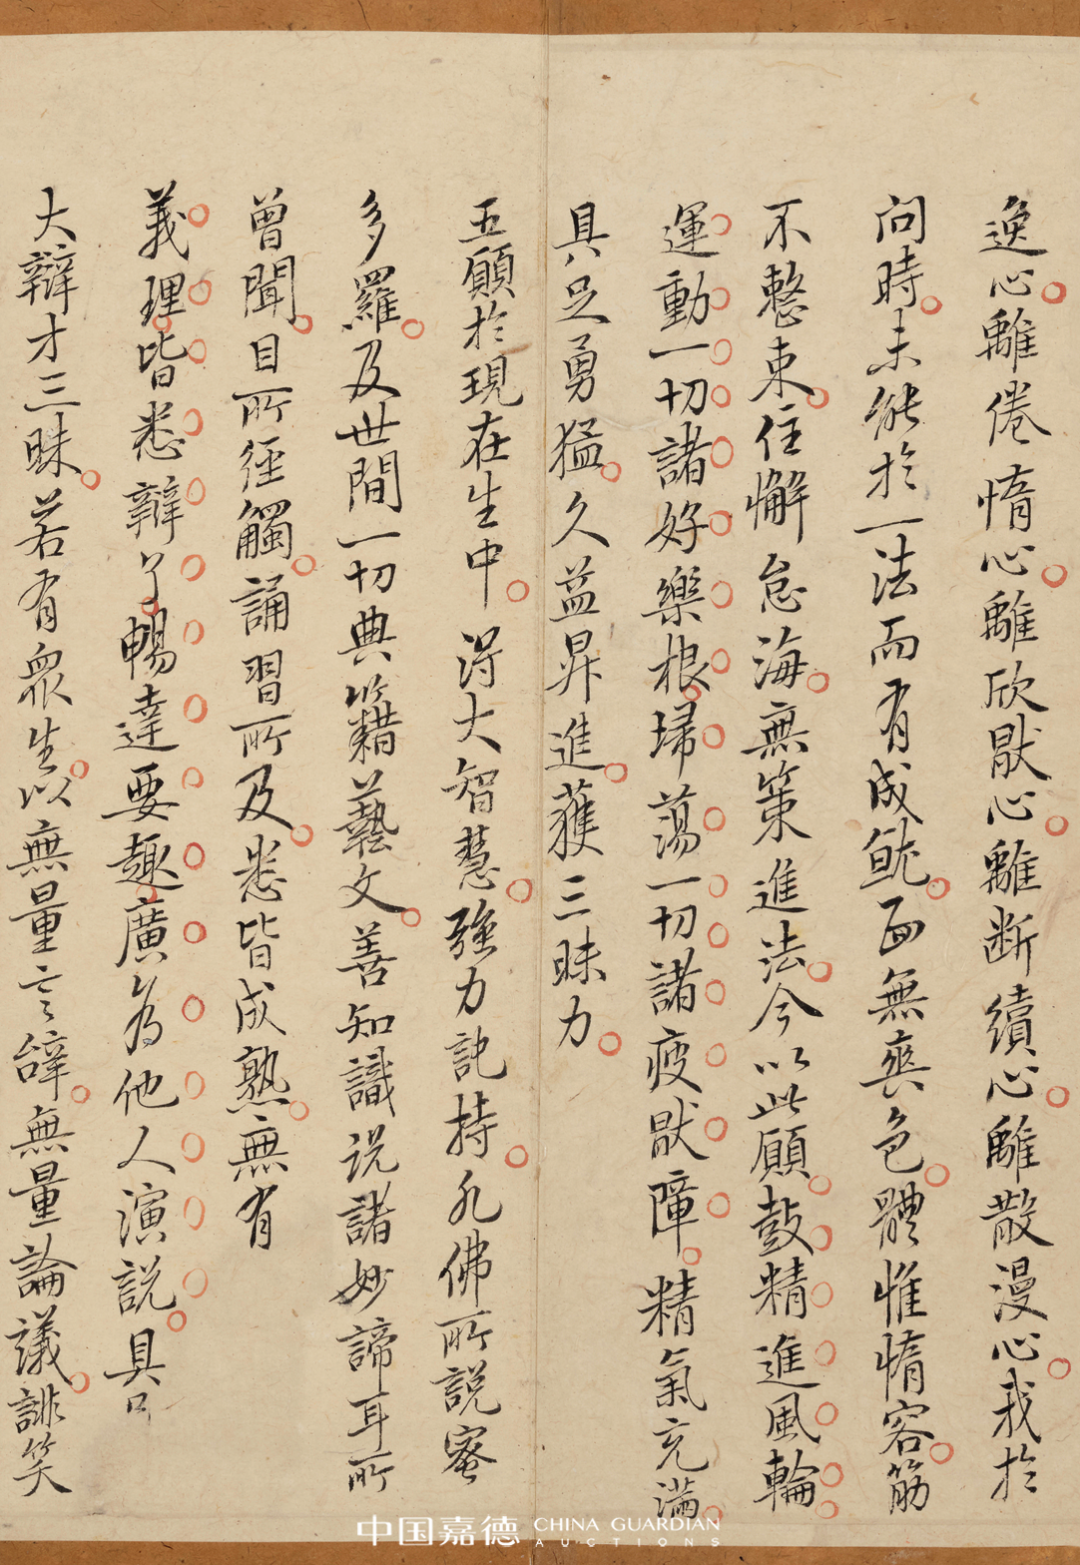 逸心離倦惰心離欣猒心離断續心離散漫心我於
問時未能於一法而有成就面無爽色體惟惰容筋
不整束住懈怠海無策進法今以此願鼓精進風輪
運動一切諸好樂根埽蕩一切諸疲猒障精氣充滿
具足勇猛久益昇進獲三昧力
五願於現在生中得大智慧強力記持凡佛所說蜜
多羅及世間一切典籍藝文善知識说諸妙諦耳所
曾聞目所徑觸誦習所及悉皆成熟無有
義理皆悉辯了暢達要趣廣為他人演説具
大辯才三昧若有眾生以無量言辭無量論議誹笑
中国嘉德 CHINA GUARDIAN
AUCTIONS